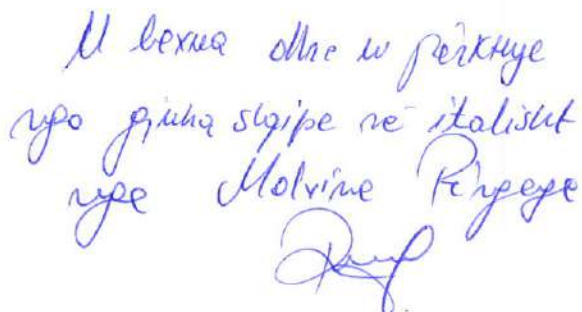 U lexua dhe u përkthye
nga gjuha shqipe në italisht
nga Malvina